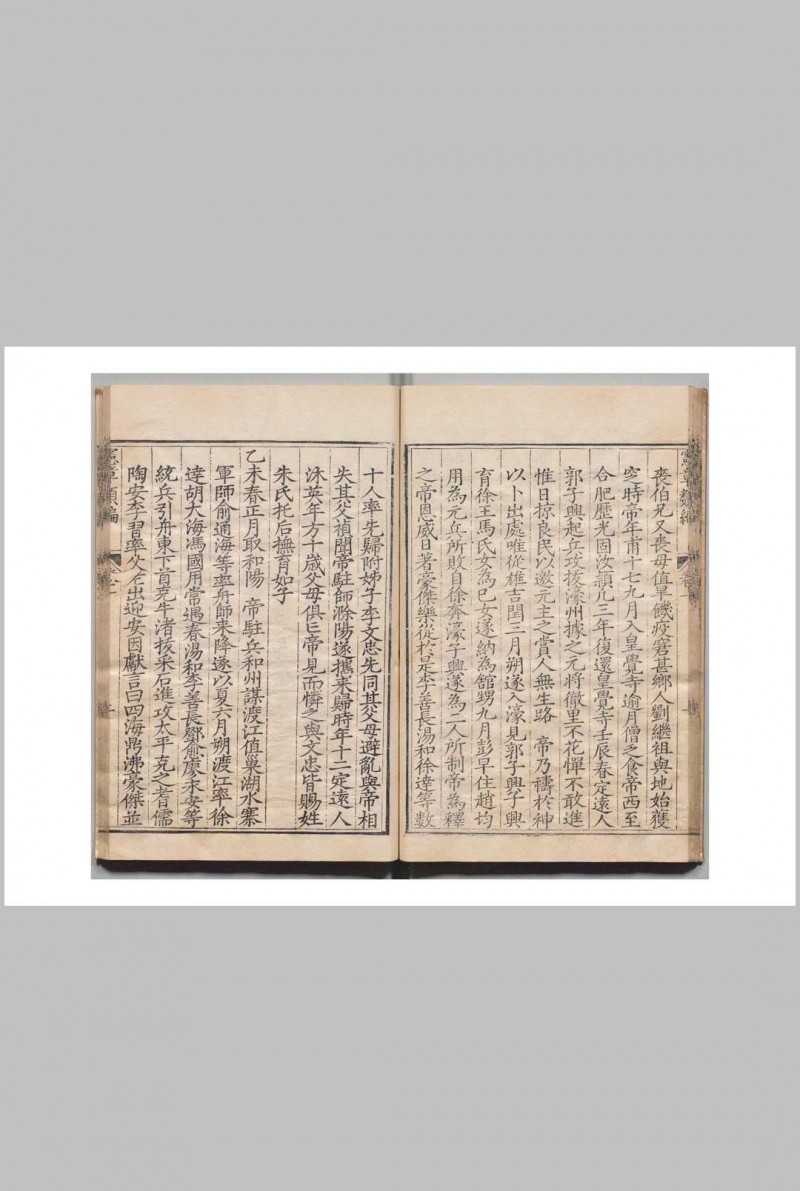 喪伯兄又喪母值旱饑疫窘甚鄉人劉繼祖與地始獲
窆時帝年甫十七九月入皇覺寺逾月僧乏食帝西至
合肥歷光固汝潁凡三年復還皇覺寺壬辰春定遠人
郭子興起兵攻拔濠州據之元將徹里不花憚不敢進
惟日掠良民以邀元主之賞人無生路 帝乃禱於神
以卜出處唯從雄吉閏三月朔遂入濠見郭子興子興
育徐王馬氏女為已女遂納為舘甥九月彭早住趙均
用為元兵所敗自徐奔濠子興遂為二人所制帝為釋
之帝恩威日著豪傑樂從於是李善長湯和徐達等數
十人率先歸附姊子李文忠先同其父母避亂與帝相
失其父禎聞帝駐師滁陽遂攜来歸時年十二定遠人
沐英年方十歲父母俱亡帝見而憐之與文忠皆賜姓
朱氏托后撫育如子
乙未春正月取和陽 帝駐兵和州謀渡江值巢湖水寨
軍師俞通海等率舟師来降遂以夏六月朔渡江率徐
達胡大海馮國用常遇春湯和李善長鄧愈廖永安等
統兵引舟東下首克牛渚拔采石進攻太平克之耆儒
陶安李習率父老出迎安因獻言曰四海鼎沸豪傑並
憲章類編